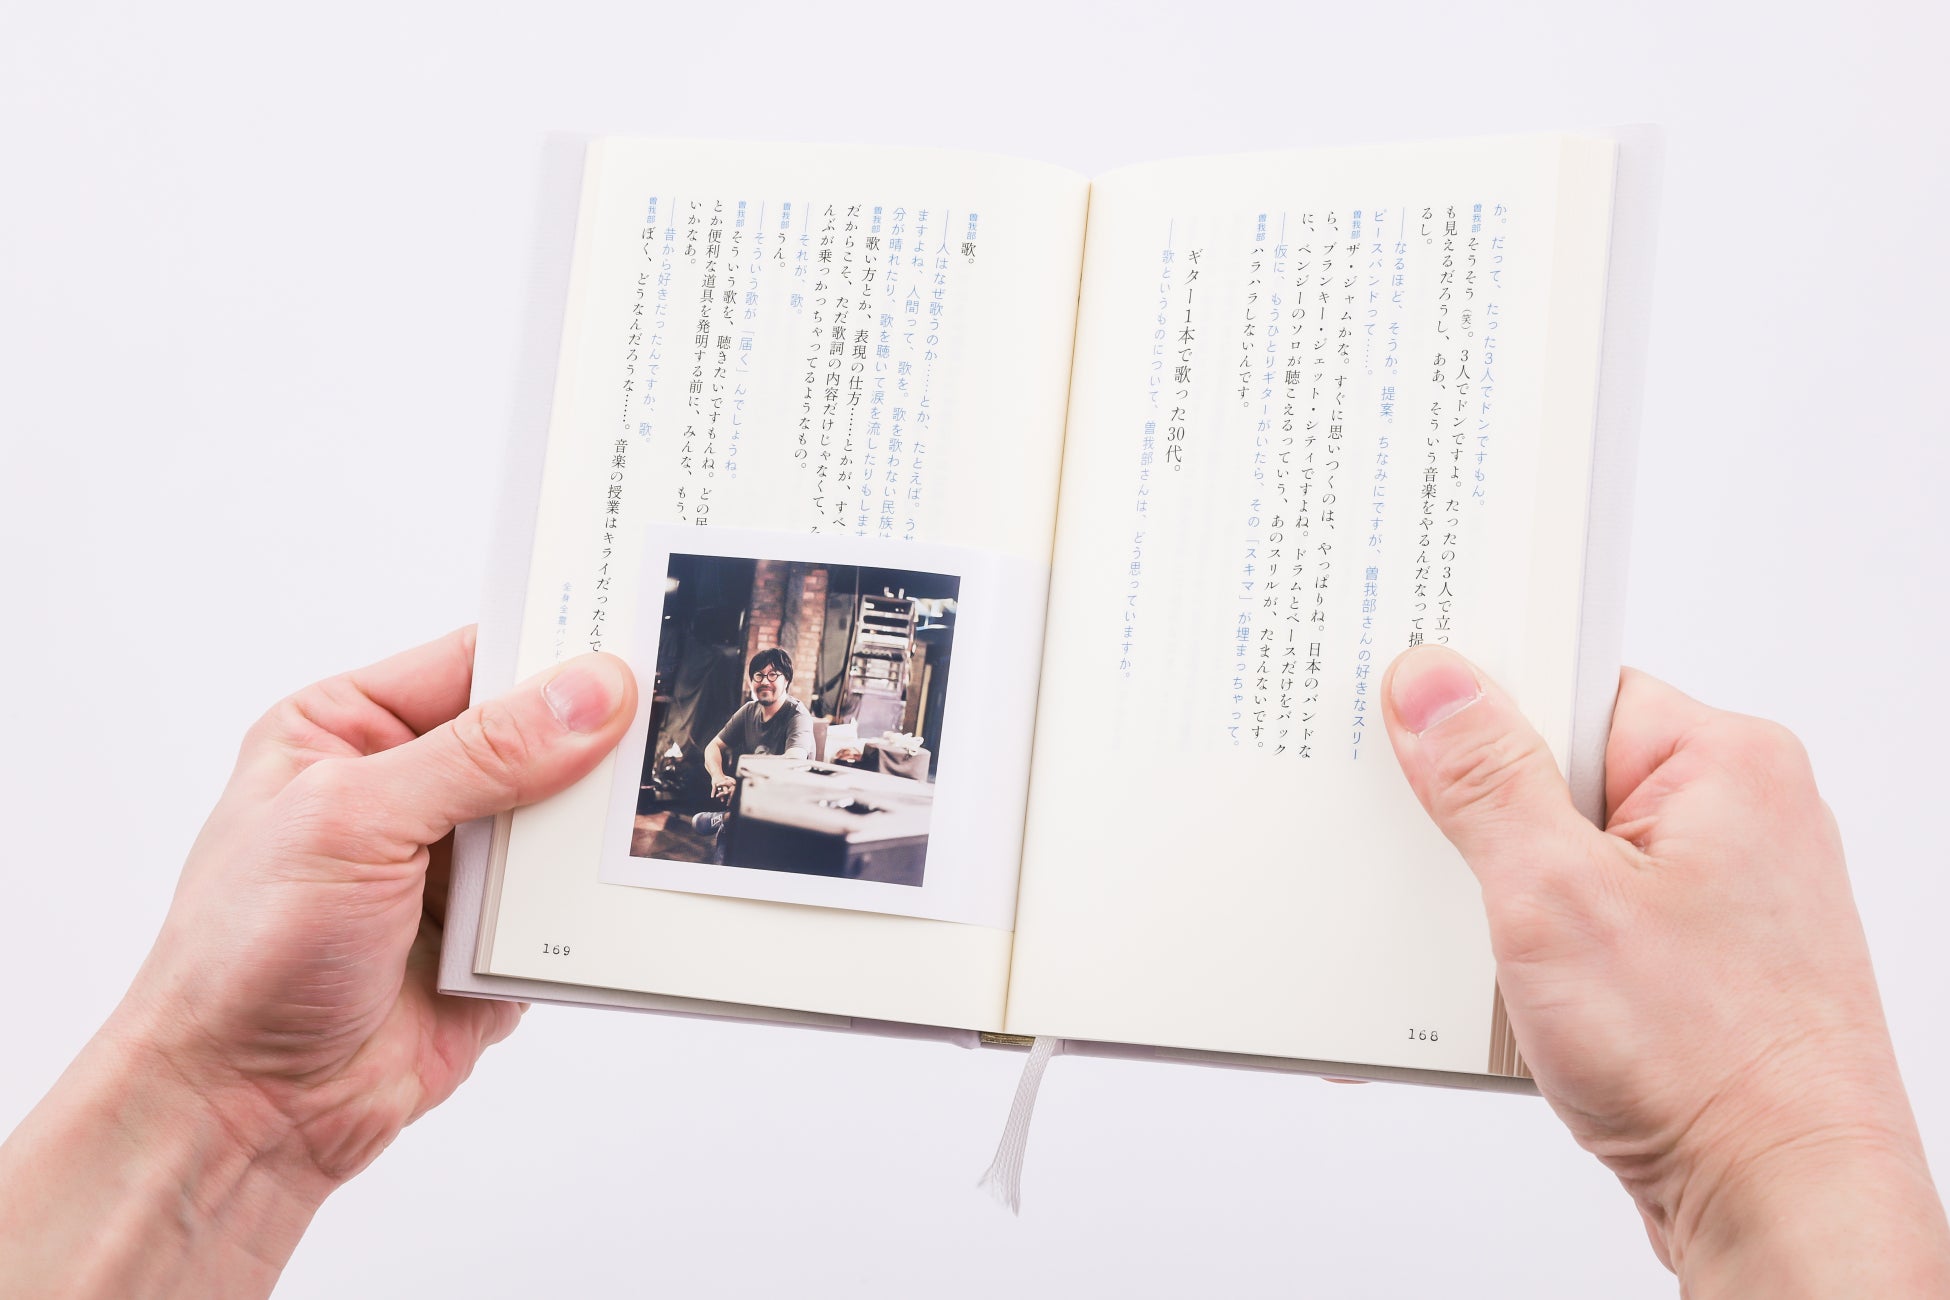 か。だって、たった3人でドンですもん。
曽我部 そうそう(笑)。3人でドンですよ。たったの3人で立っ
も見えるだろうし、ああ、そういう音楽をやるんだなって提
るし。
――なるほど、そうか。提案。ちなみにですが、曽我部さんの好きなスリー
ピースバンドって……。
曽我部 ザ・ジャムかな。すぐに思いつくのは、やっぱりね。日本のバンドな
ら、ブランキー・ジェット・シティですよね。ドラムとベースだけをバック
に、ベンジーのソロが聴こえるっていう、あのスリルが、たまんないです。
――仮に、もうひとりギターがいたら、その「スキマ」が埋まっちゃって。
曽我部 ハラハラしないんです。
ギター1本で歌った30代。
――歌というものについて、曽我部さんは、どう思っていますか。
168
曽我部 歌。
――人はなぜ歌うのか……とか、たとえば。うれ
ますよね、人間って、歌を。歌を歌わない民族は
分が晴れたり、歌を聴いて涙を流したりもします
曽我部 歌い方とか、表現の仕方……とかが、すべ
だからこそ、ただ歌詞の内容だけじゃなくて、
んぶが乗っかっちゃってるようなもの。
――それが、歌。
曽我部 うん。
――そういう歌が「届く」んでしょうね。
曽我部 そういう歌を、聴きたいですもんね。どの
とか便利な道具を発明する前に、みんな、もう、
いかなあ。
――昔から好きだったんですか、歌。
曽我部 ぼく、どうなんだろうな……。音楽の授業はキライだったんで
全身全霊バンド
169